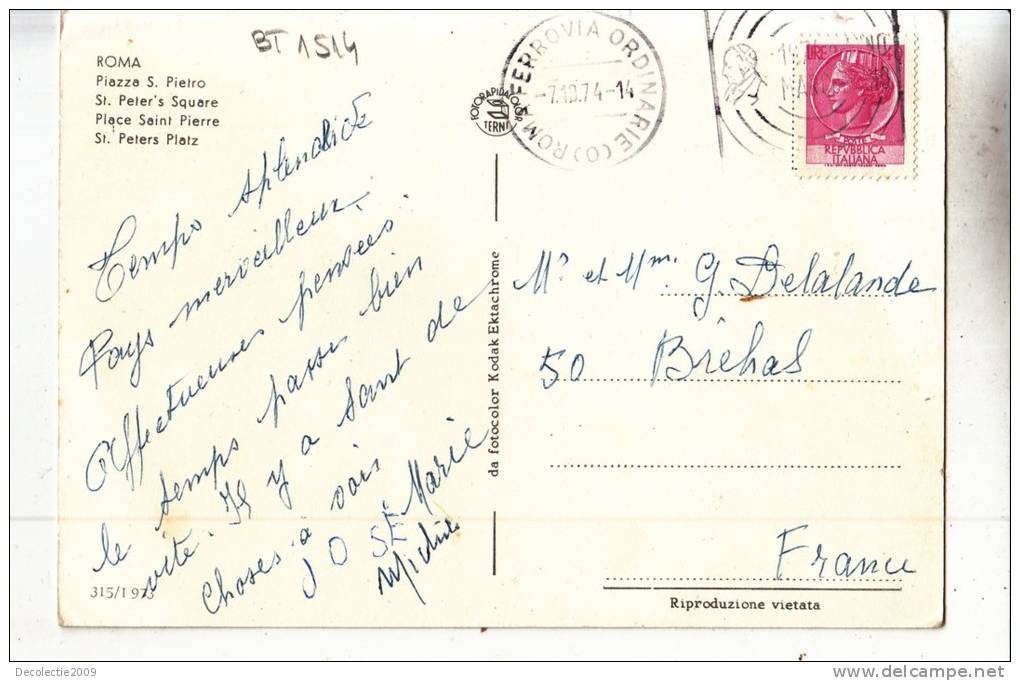 BT 1514
ROMA
Piazza S. Pietro
St. Peter's Square
Place Saint Pierre
St. Peters Platz
Temps splendide
Pays merveilleux.
Affectueuses pensées.
le temps passe bien
vite. Il y a tant de
choses à voir
JOSÉ Marie
Michèle
315/I 973
FOTORAPIDACOLOR
TERNI
da fotocolor Kodak Ektachrome
ROMA FERROVIA ORDINARIE (O)
-7.10.74-14
LIRE
POSTE
REPVBBLICA
ITALIANA
Mr et Mme G. Delalande
50 Bréhal
France
Riproduzione vietata
Decolectie2009
www.delcampe.net